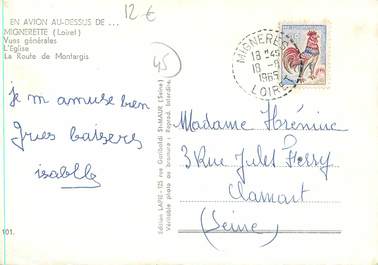 EN AVION AU-DESSUS DE ...
MIGNERETTE (Loiret)
Vues générales
L'Eglise
La Route de Montargis
12 €
45
MIGNERE
18 H 45
18 -8
1965
LOIRET
je m amuse bien
gros baisers
isabelle
Edition LAPIE - 125 rue Garibaldi St-MAUR (Seine)
Véritable photo au bromure - Reprod. interdite.
Madame Hoséninc
3 Rue Jules Ferry
Clamart
(Seine)
101.